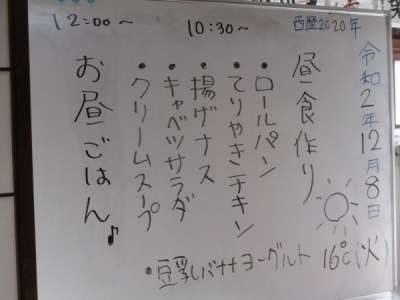 西暦2020年
令和2年12月8日
16℃(火)
10:30〜
昼食作り
・ロールパン
・てりやきチキン
・揚げナス
・キャベツサラダ
・クリームスープ
・豆乳バナナヨーグルト
12:00〜
お昼ごはん♪